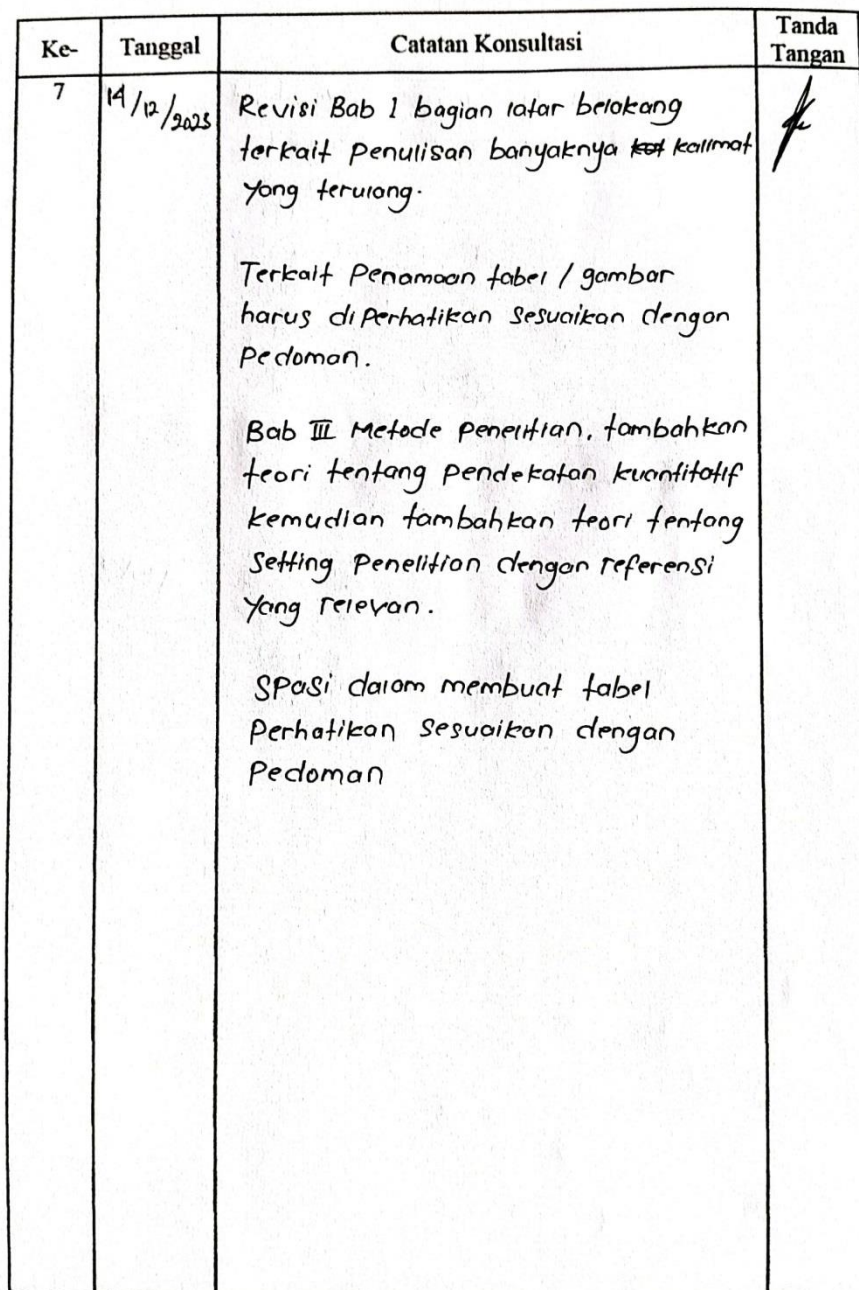 Ke- Tanggal Catatan Konsultasi Tanda Tangan
7 14/12/2023 Revisi Bab 1 bagian latar belakang
terkait Penulisan banyaknya kalimat
yang terulang.
Terkait Penamaan tabel / gambar
harus diperhatikan sesuaikan dengan
Pedoman.
Bab III Metode penelitian, tambahkan
teori tentang pendekatan kuantitatif
kemudian tambahkan teori tentang
Setting Penelitian dengan referensi
yang relevan.
Spasi dalam membuat tabel
Perhatikan sesuaikan dengan
Pedoman